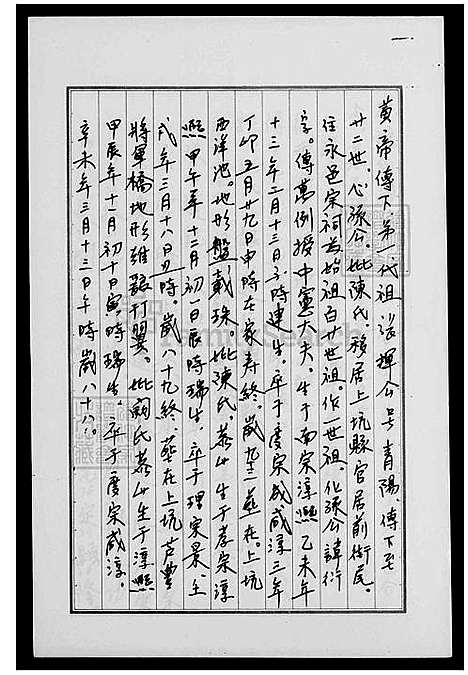 一
黃帝傳下第一代祖張揮公号青陽傳下至
廿二世。心張公。妣陳氏。移居上坑縣官居前街民。
住永邑宗祠為始祖自廿世祖。作一世祖。化孫公諱衍
字。傳萬例授中憲大夫。生于南宗淳熙乙未年
十三年二月十三日子時建生。卒于度宗咸咸淳三年
丁卯五月廿九日申時在家寿終。歲九十三葬在。上坑
西洋池。地形盤載珠妣陳氏葬仝生于孝宗淳
熙甲午年十二月初一日辰時瑞生。卒于理宗景。
戌年三月十八日丑時。歲八十九終。葬在上坑芦豐
將軍橋地形雄雞打翼。妣氏葬仝生于淳熙
甲辰年十一月初十日寅時瑞生。卒于度宗咸淳。
辛未年三月十三日午時歲八十八。